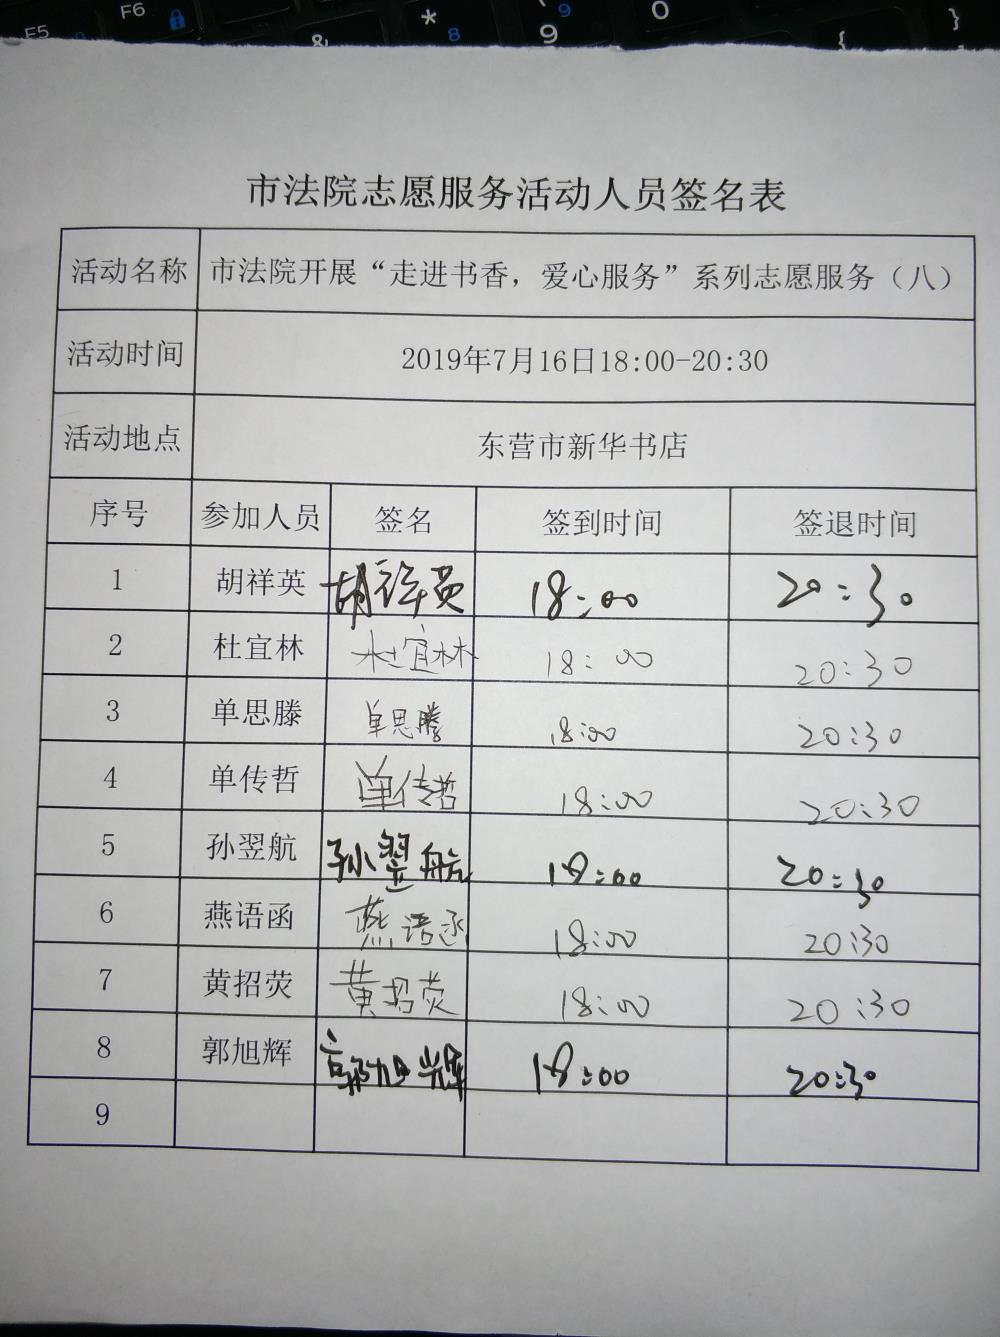 F5 F6 & * 8 9 9 0 { }
市法院志愿服务活动人员签名表
活动名称 市法院开展“走进书香，爱心服务”系列志愿服务（八）
活动时间 2019年7月16日18:00-20:30
活动地点 东营市新华书店
序号 参加人员 签名 签到时间 签退时间
1 胡祥英 胡祥英 18:00 20:30
2 杜宜林 杜宜林 18:00 20:30
3 单思滕 单思滕 18:00 20:30
4 单传哲 单传哲 18:00 20:30
5 孙翌航 孙翌航 18:00 20:30
6 燕语函 燕语函 18:00 20:30
7 黄招荧 黄招荧 18:00 20:30
8 郭旭辉 郭旭辉 18:00 20:30
9